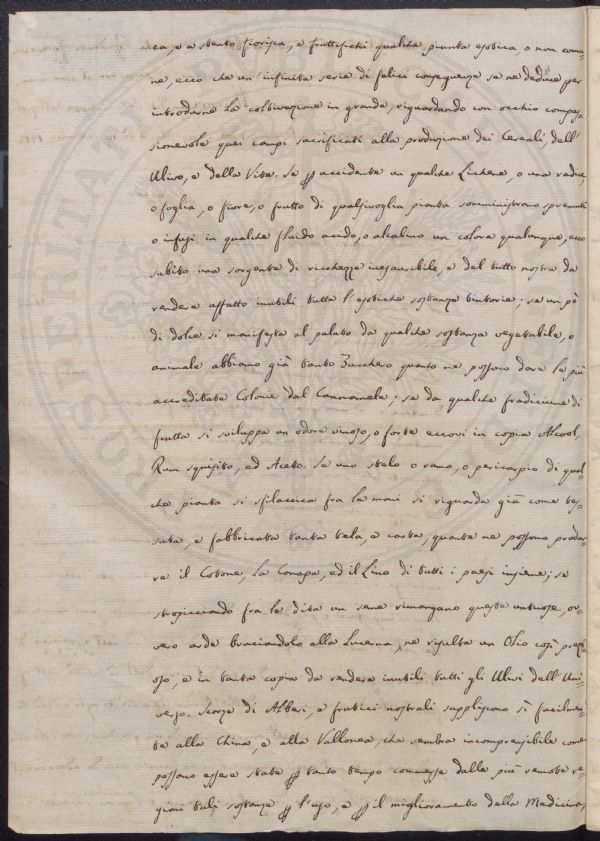 ca, e a stento fiorisca, e fruttifichi qualche pianta esotica, o non comu-
ne, ecco che un' infinita serie di felici conseguenze se ne deduce per
introdurne la coltivazione in grande, riguardando con occhio compas-
sionevole quei campi sacrificati alla produzione dei Cereali, dell'
Ulivo, e della Vite. Se p accidente un qualche Lichene, o una radice,
o foglia, o fiore, o frutto di qualsivoglia pianta somministrano spremuti
o infusi in qualche fluido acido, o alcalino un colore qualunque, ecco
subito una sorgente di ricchezze inesauribile, e del tutto nostra da
rendere affatto inutili tutte l'esotiche sostanze tintorie; se un pò
di dolce si manifesta al palato da qualche sostanza vegetabile, o
animale abbiamo già tanto Zucchero quanto ne possono dare le più
accreditate Colonie dal Cannamele; se da qualche fradiciume di
frutta si sviluppa un odore vinoso, o forte eccovi in copia Alcool,
Rum squisito, ed Aceto. Se uno stelo o ramo, o pericarpio di qual-
che pianta si sfilaccica fra le mani si riguarda già come tes-
suta, e fabbricata tanta tela, e carta, quante ne possono produr-
re il Cotone, la Canapa, ed il Lino di tutti i paesi insieme; se
stropicciando fra le dita un seme rimangano queste untuose, ov-
vero arde bruciandolo alla Lucerna, ne risulta un Olio così prezi
oso, e in tanta copia da rendere inutili tutti gli Ulivi dell' Uni-
verso. Scorze di Alberi, e frutici nostrali suppliscono sì facilmen-
te alla China, e alla Vallonea, che sembra incomprensibile come
possano essere state p tanto tempo commesse dalle più remote re-
gioni tali sostanze p l'uso, e p il miglioramento della Medicina,